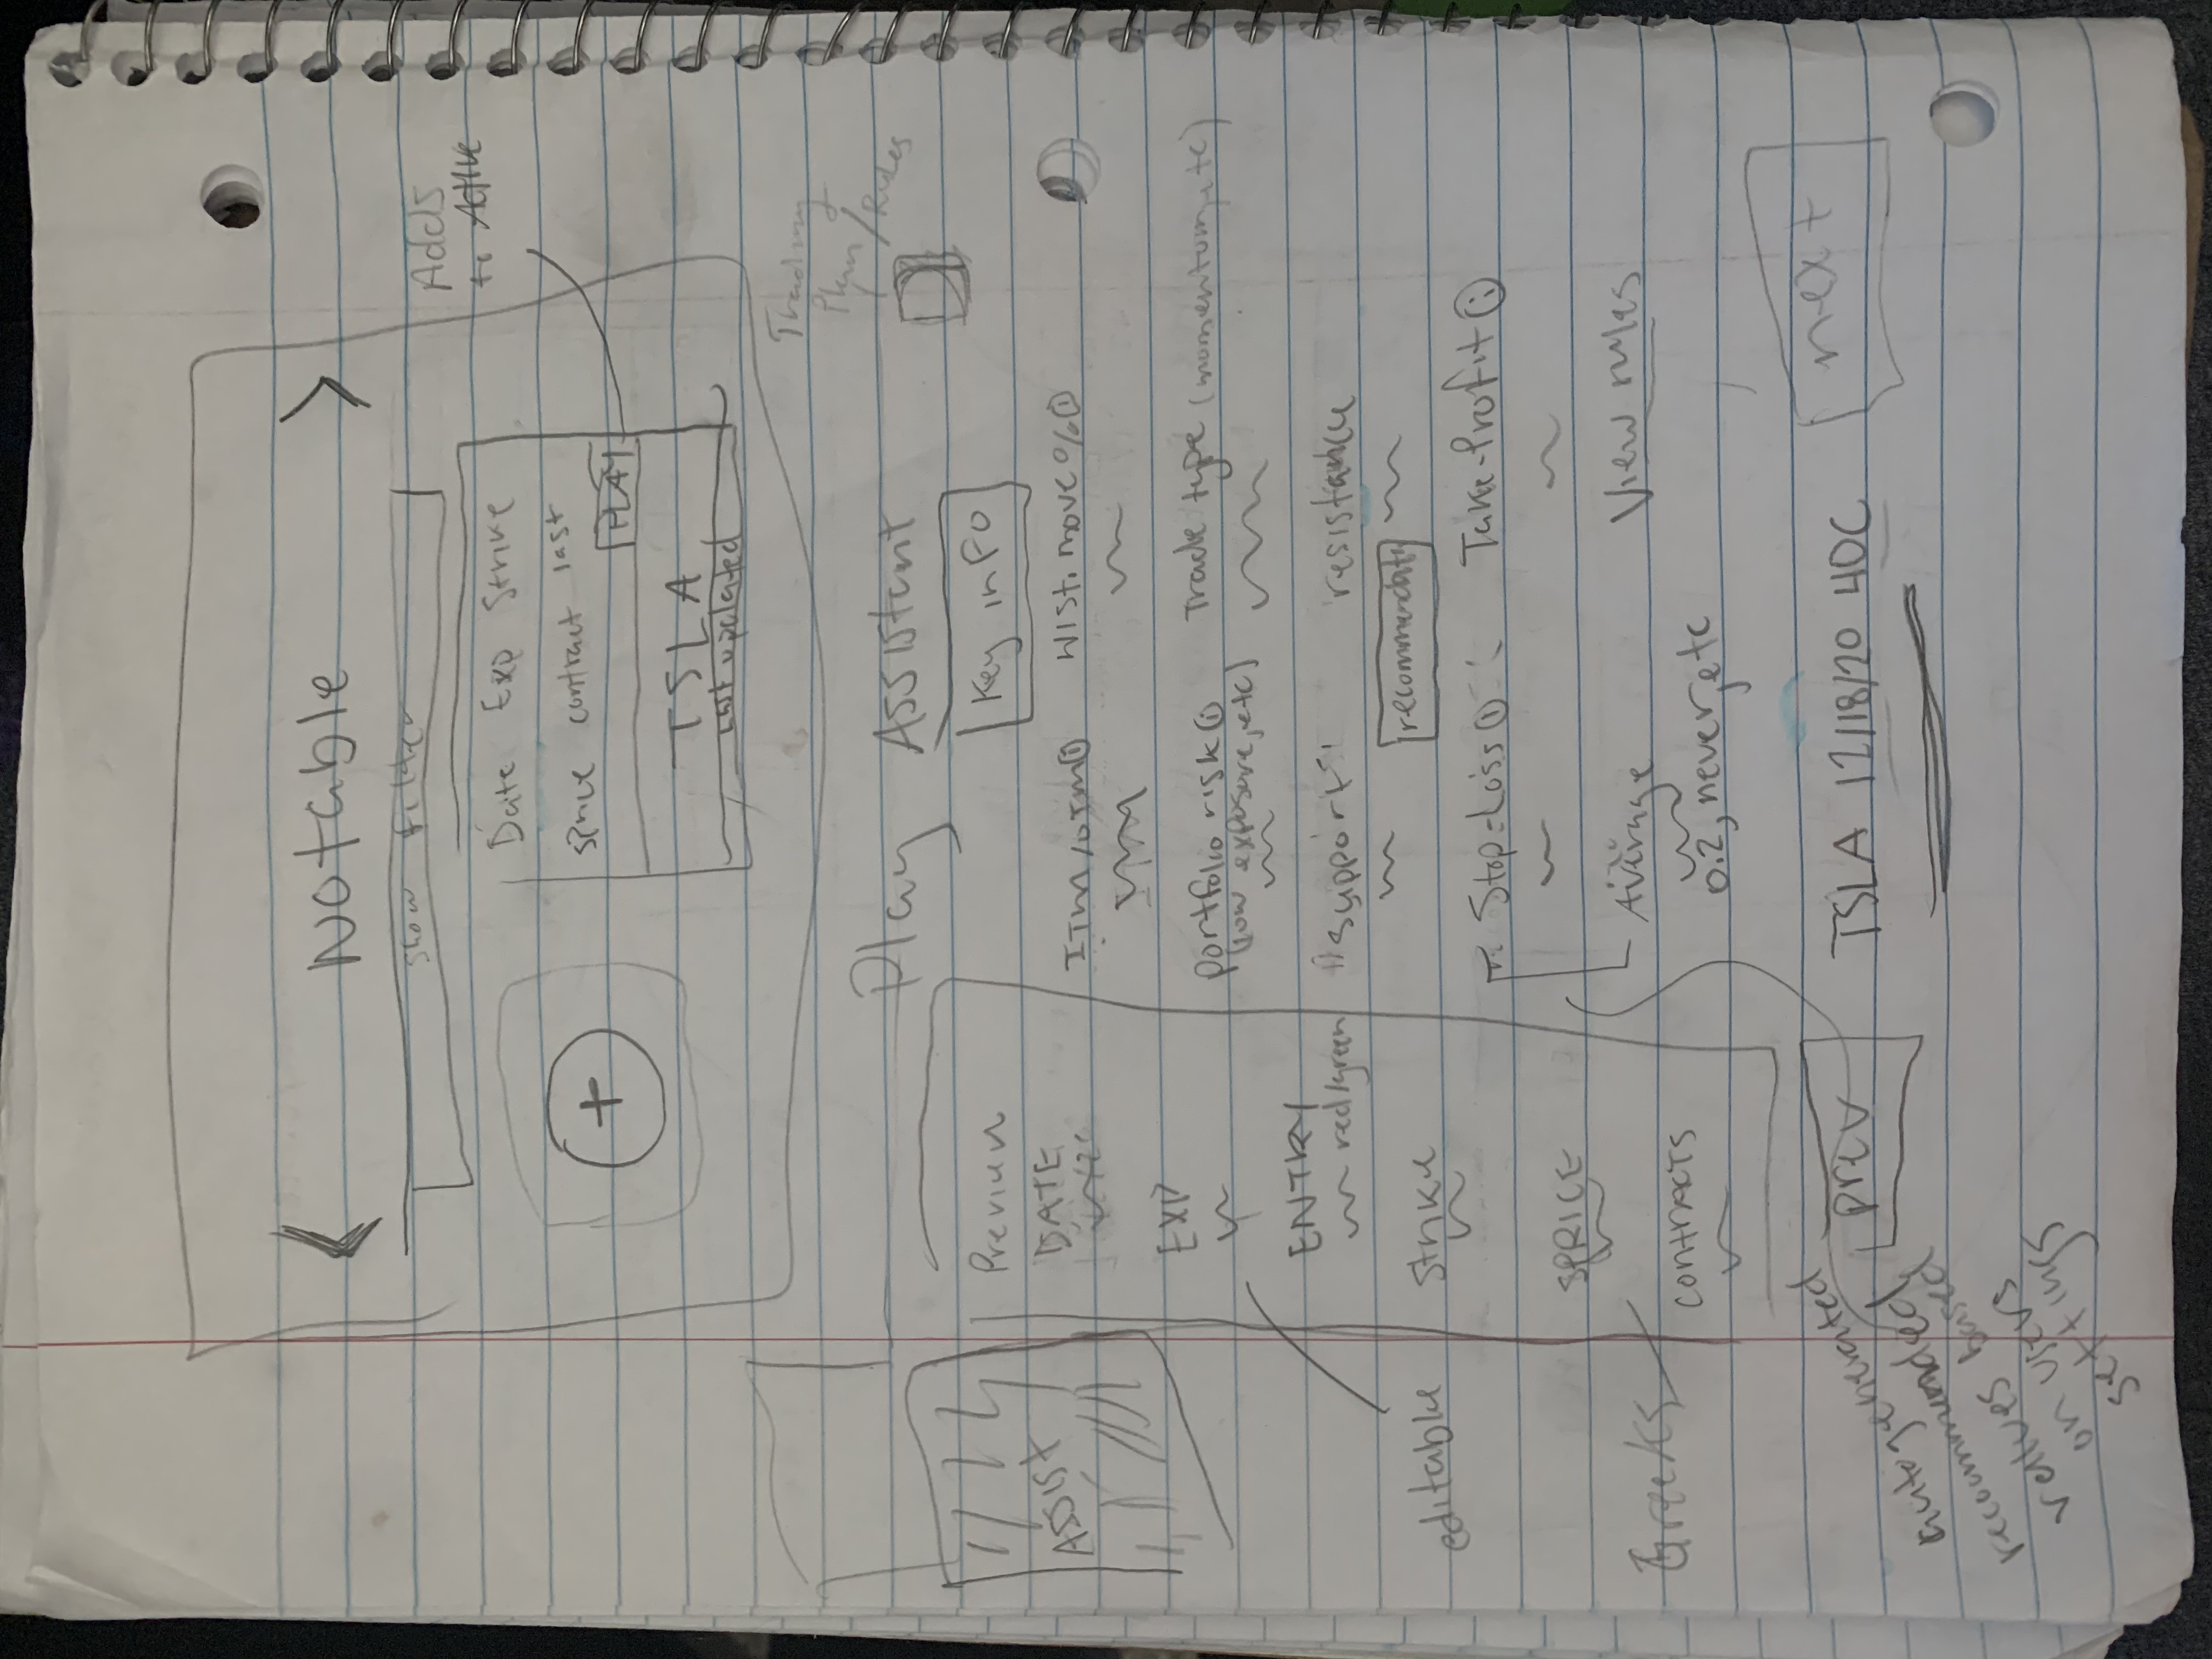 Notable
Show filter
Date Exp Strike
sprice contract last
PLAY
TSLA
last updated
Adds
to Active
Trading
Plan / Rules
Play Assistant
Key info
ASSIST
Preview
DATE
EXP
ENTRY
red/green
Strike
SPRICE
CONTRACTS
editable
Greeks
ITM/OTM ⓘ
Hist. move % ⓘ
portfolio risk ⓘ
(low exposure, etc)
Trade type (momentum, etc)
"support"
resistance
recommendati
Stop-Loss ⓘ
Take-Profit ⓘ
Average
View rules
0.2, never, etc
prev
TSLA 12/18/20 40C
next
autogenerated
recommended
values based
on users
settings